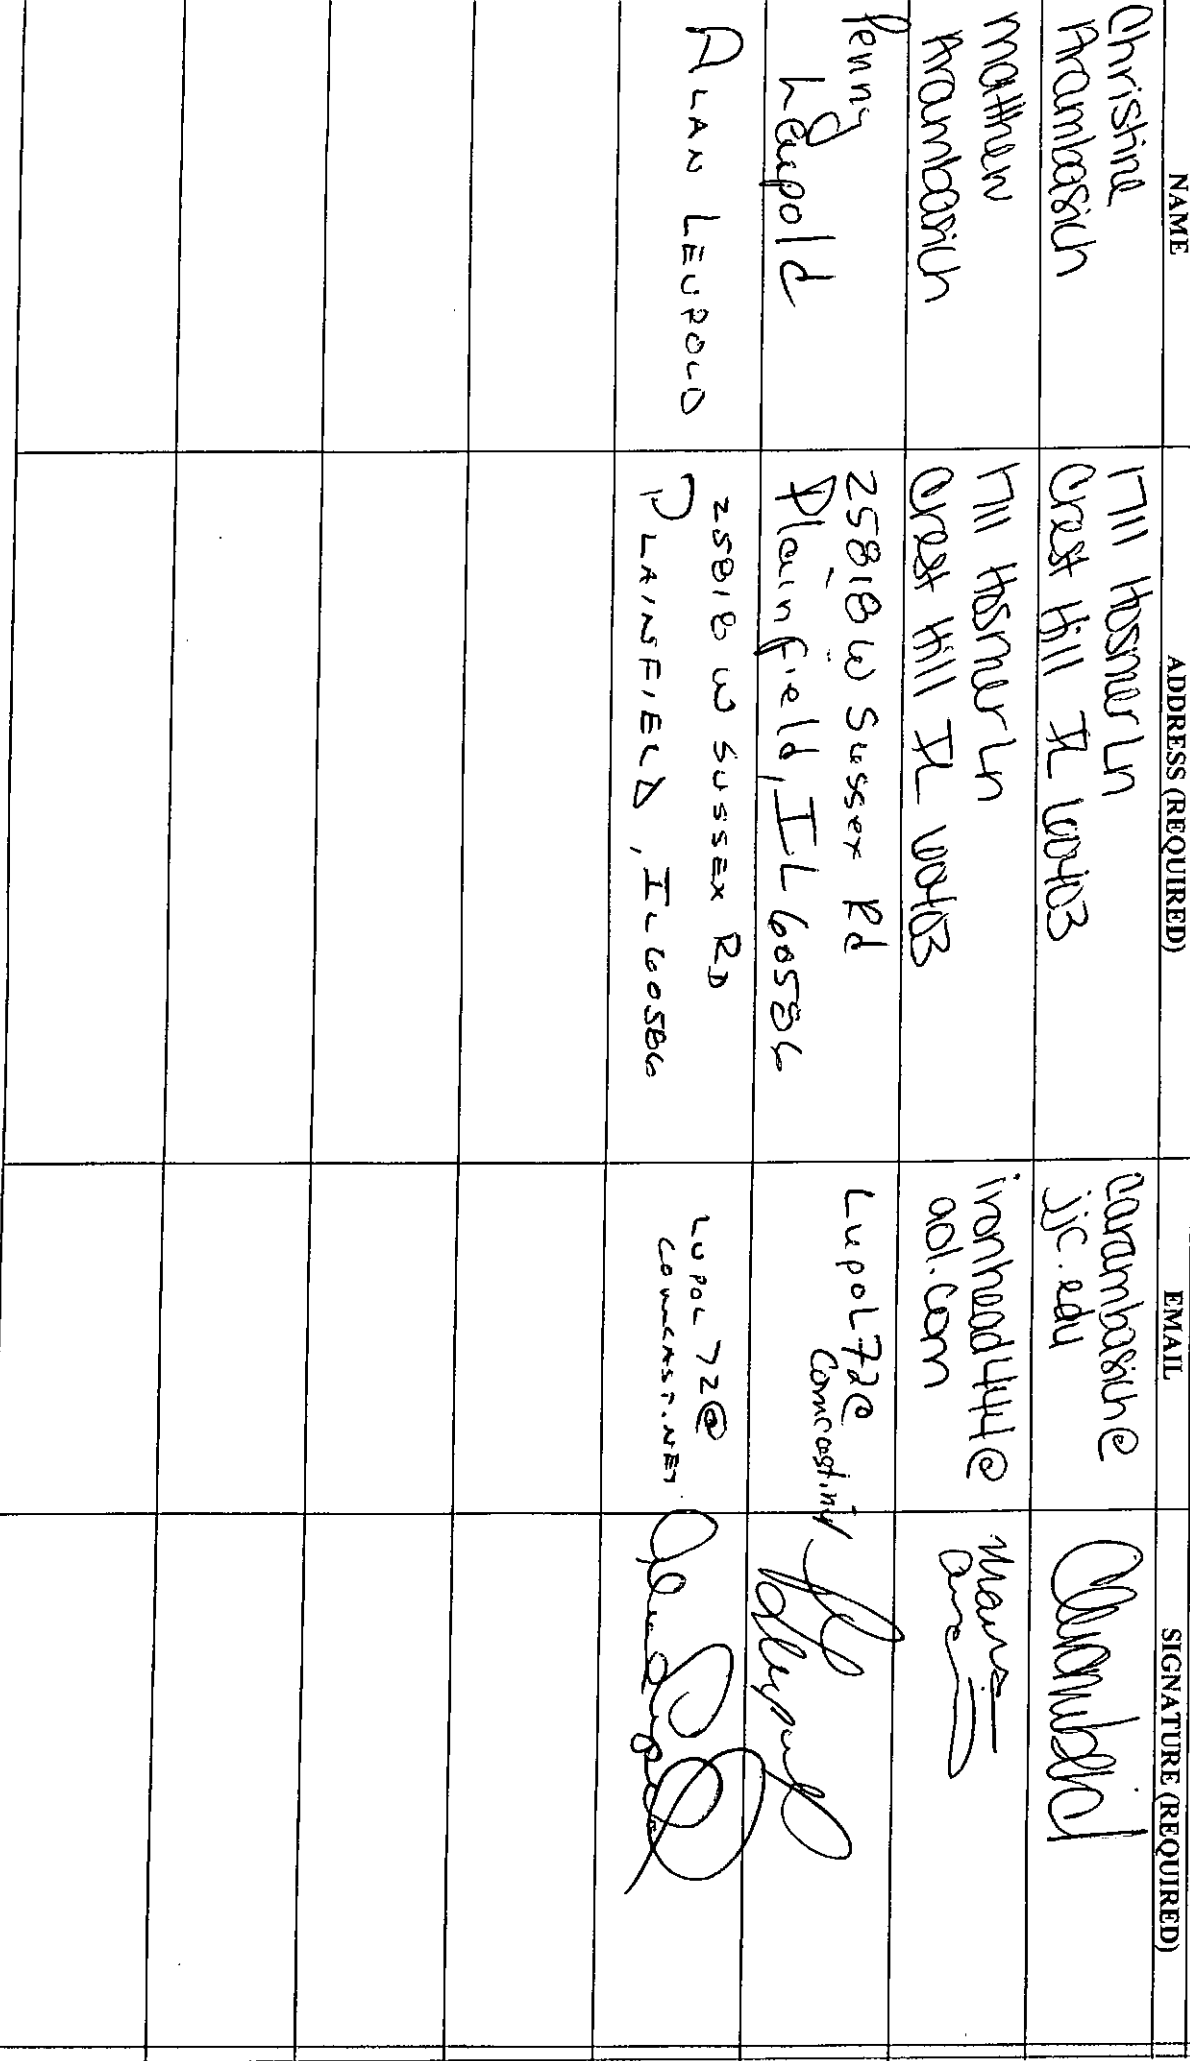 NAME
ADDRESS (REQUIRED)
EMAIL
SIGNATURE (REQUIRED)
Christine
Arambasich
1711 Hosmer Ln
Crest Hill IL 60403
carambasich@
jjc.edu
Matthew
Arambasich
1711 Hosmer Ln
Crest Hill IL 60403
ironhead444@
aol.com
Penny
Leupold
25818 W Sussex Rd
Plainfield, IL 60586
Lupol72@
ALAN LEUPOLD
25818 W SUSSEX RD
PLAINFIELD, IL 60586
LUPOL72@
COMCAST.NET